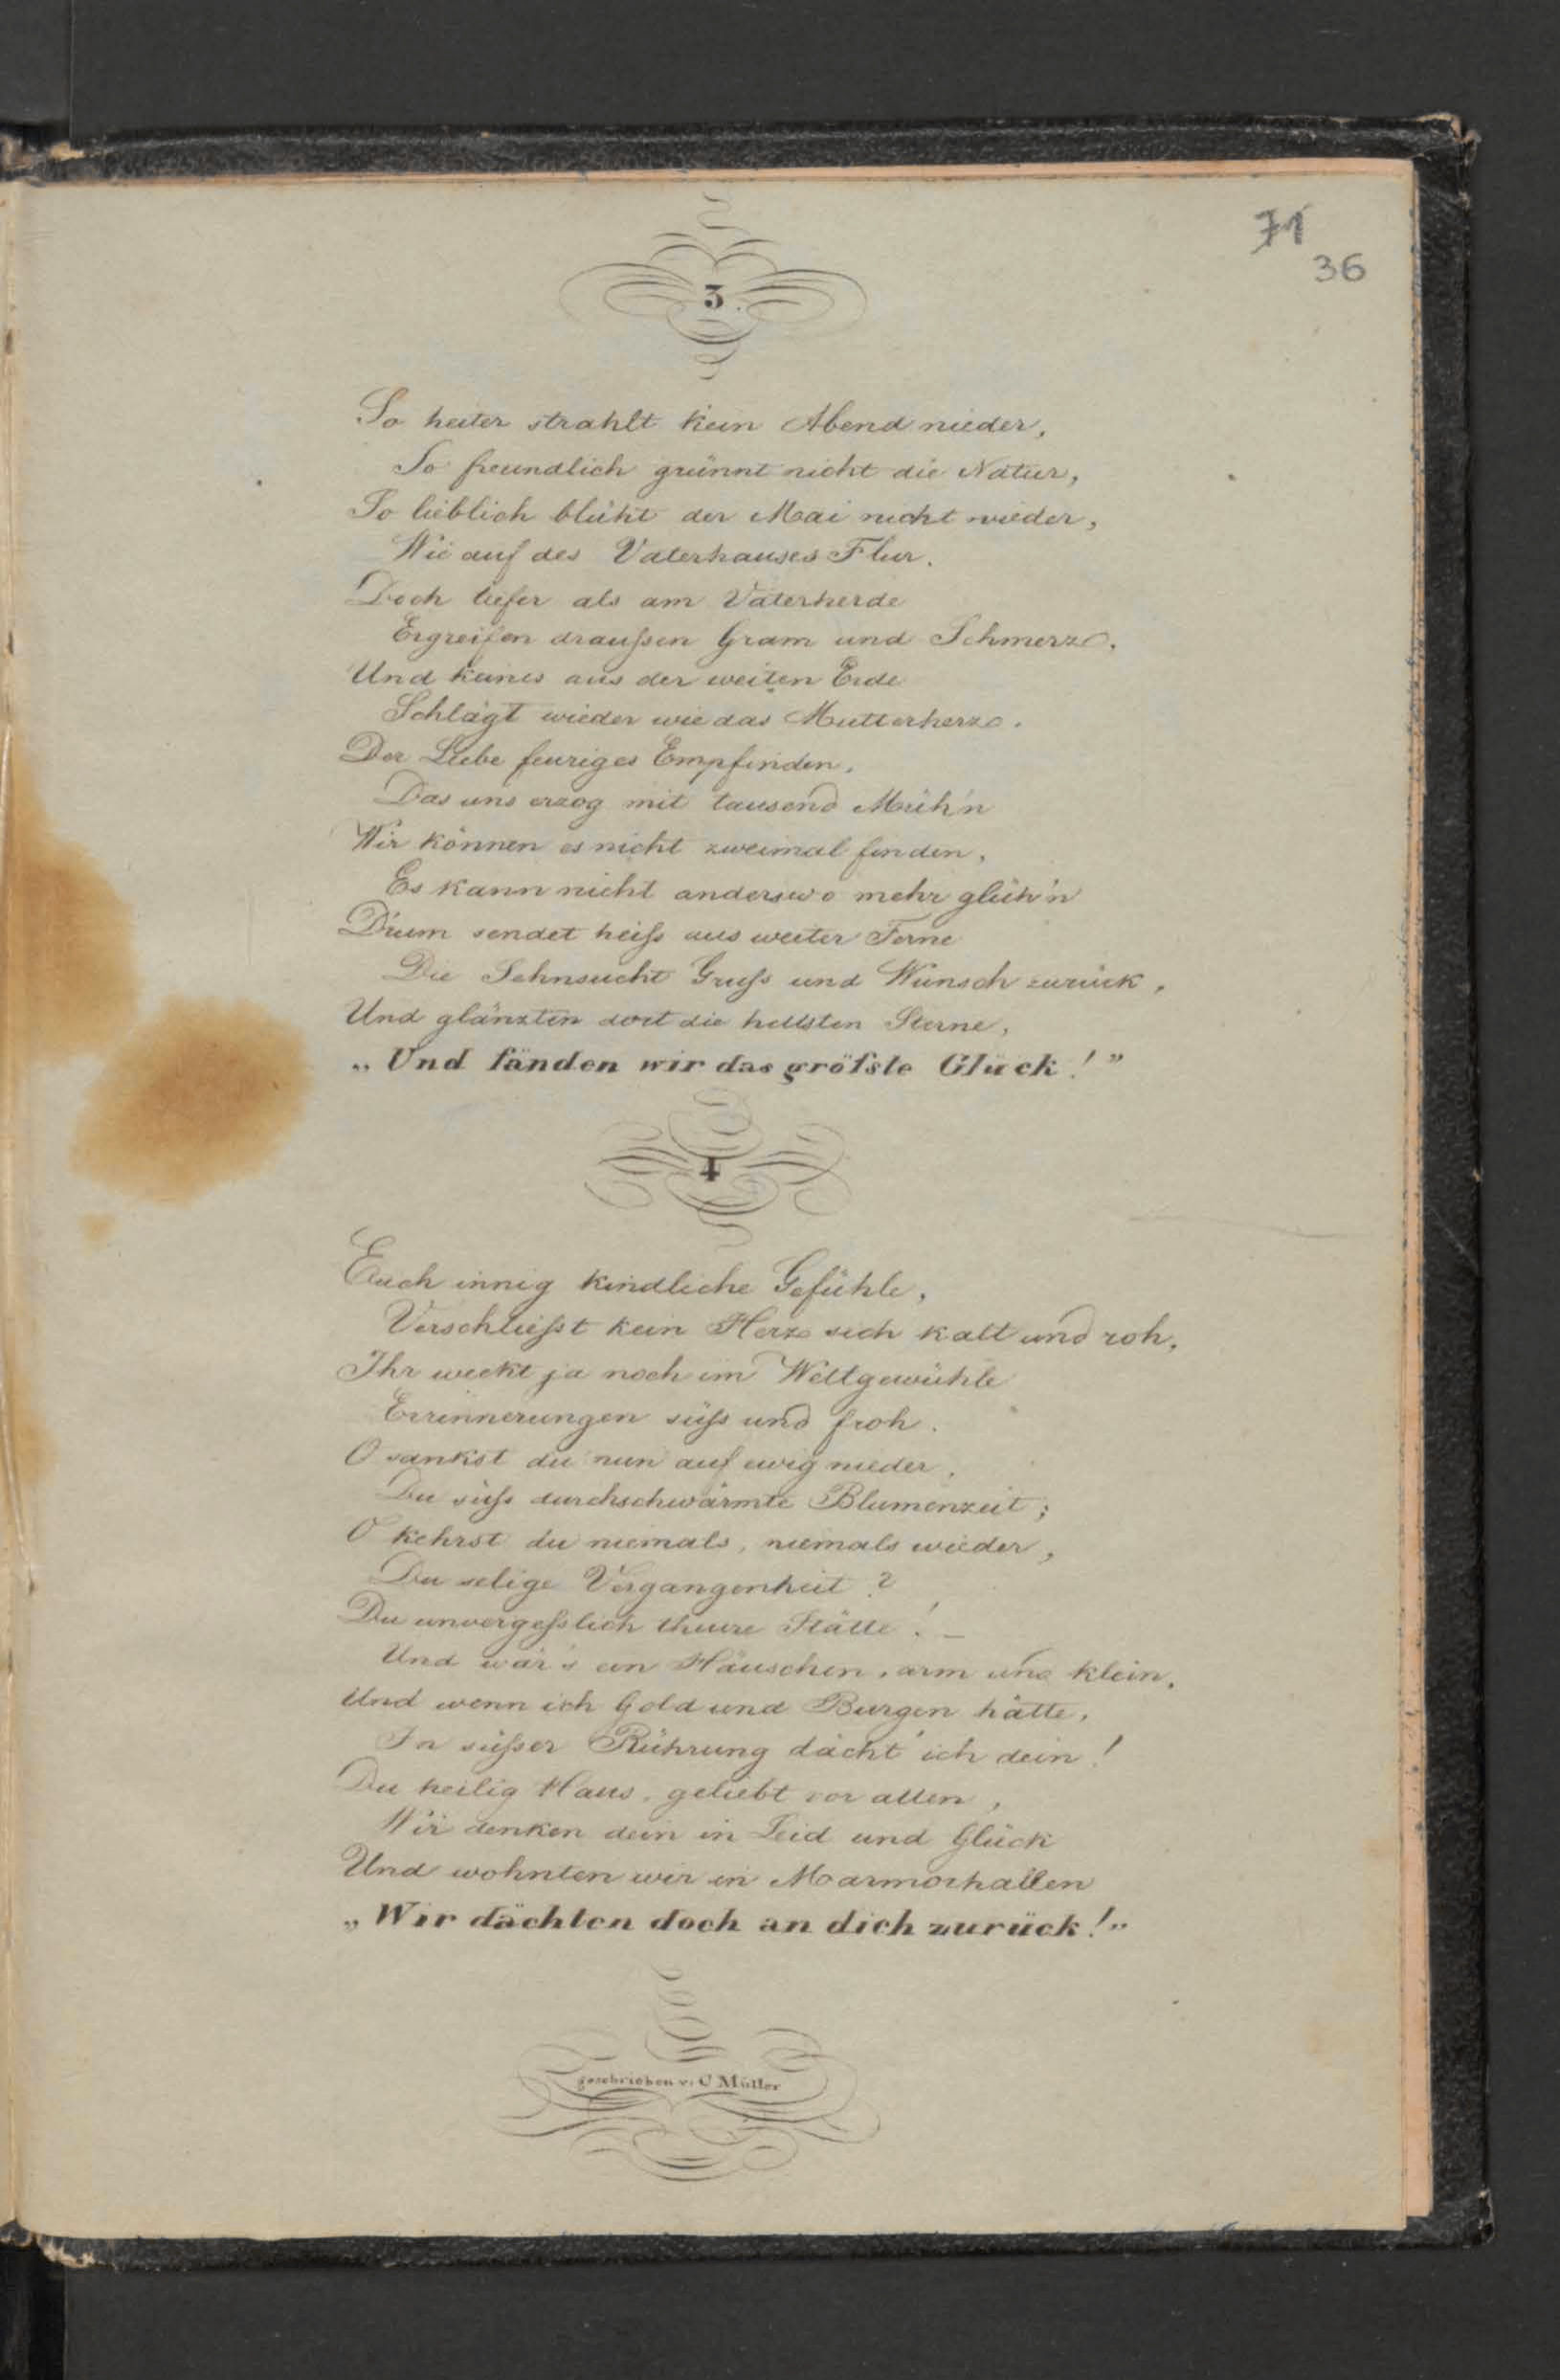 71
36
3.
So heiter strahlt kein Abend nieder,
So freundlich grünnt nicht die Natur,
So lieblich blüht der Mai nicht wieder,
Wie auf des Vaterhauses Flur.
Doch tiefer als am Vaterherde
Ergreifen draußen Gram und Schmerz.
Und keines aus der weiten Erde
Schlägt wieder wie das Mutterherz.
Der Liebe feuriges Empfinden,
Das uns erzog mit tausend Müh'n
Wir können es nicht zweimal finden,
Es kann nicht anderswo mehr glüh'n
D'rum sendet heiß aus weiter Ferne
Die Sehnsucht Gruß und Wunsch zurück,
Und glänzten dort die hellsten Sterne,
„Und fänden wir das größste Glück!”
4
Euch innig kindliche Gefühle,
Verschließt kein Herz sich kalt und roh,
Ihr weckt ja noch im Weltgewühle
Errinnerungen süß und froh.
O sankst du nun auf ewig nieder,
Du süß durchschwärmte Blumenzeit;
O kehrst du niemals, niemals wieder,
Du selige Vergangenheit?
Du unvergeßlich theure Stätte! –
Und wär's ein Häuschen, arm und klein,
Und wenn ich Gold und Burgen hätte,
In süßer Rührung dächt' ich dein!
Du heilig Haus, geliebt vor allen,
Wir denken dein in Leid und Glück
Und wohnten wir in Marmorhallen
„Wir dächten doch an dich zurück!„
geschrieben v. C Müller